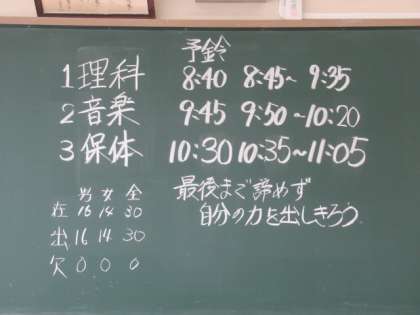 予鈴
1 理科 8:40 8:45~ 9:35
2 音楽 9:45 9:50~10:20
3 保体 10:30 10:35~11:05
男 女 全
在 16 14 30
出 16 14 30
欠 0 0 0
最後まで諦めず
自分の力を出しきろう